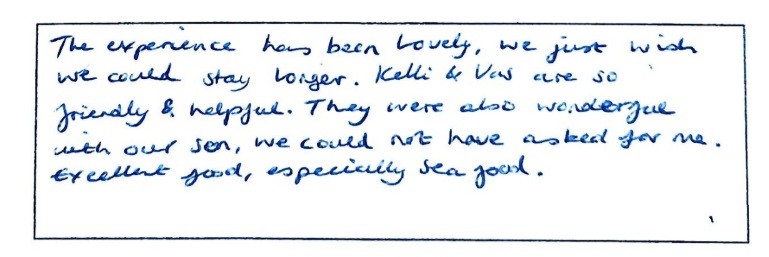 The experience has been lovely, we just wish
we could stay longer. Kelli & Vas are so
friendly & helpful. They were also wonderful
with our son, we could not have asked for me.
Excellent food, especially sea food.